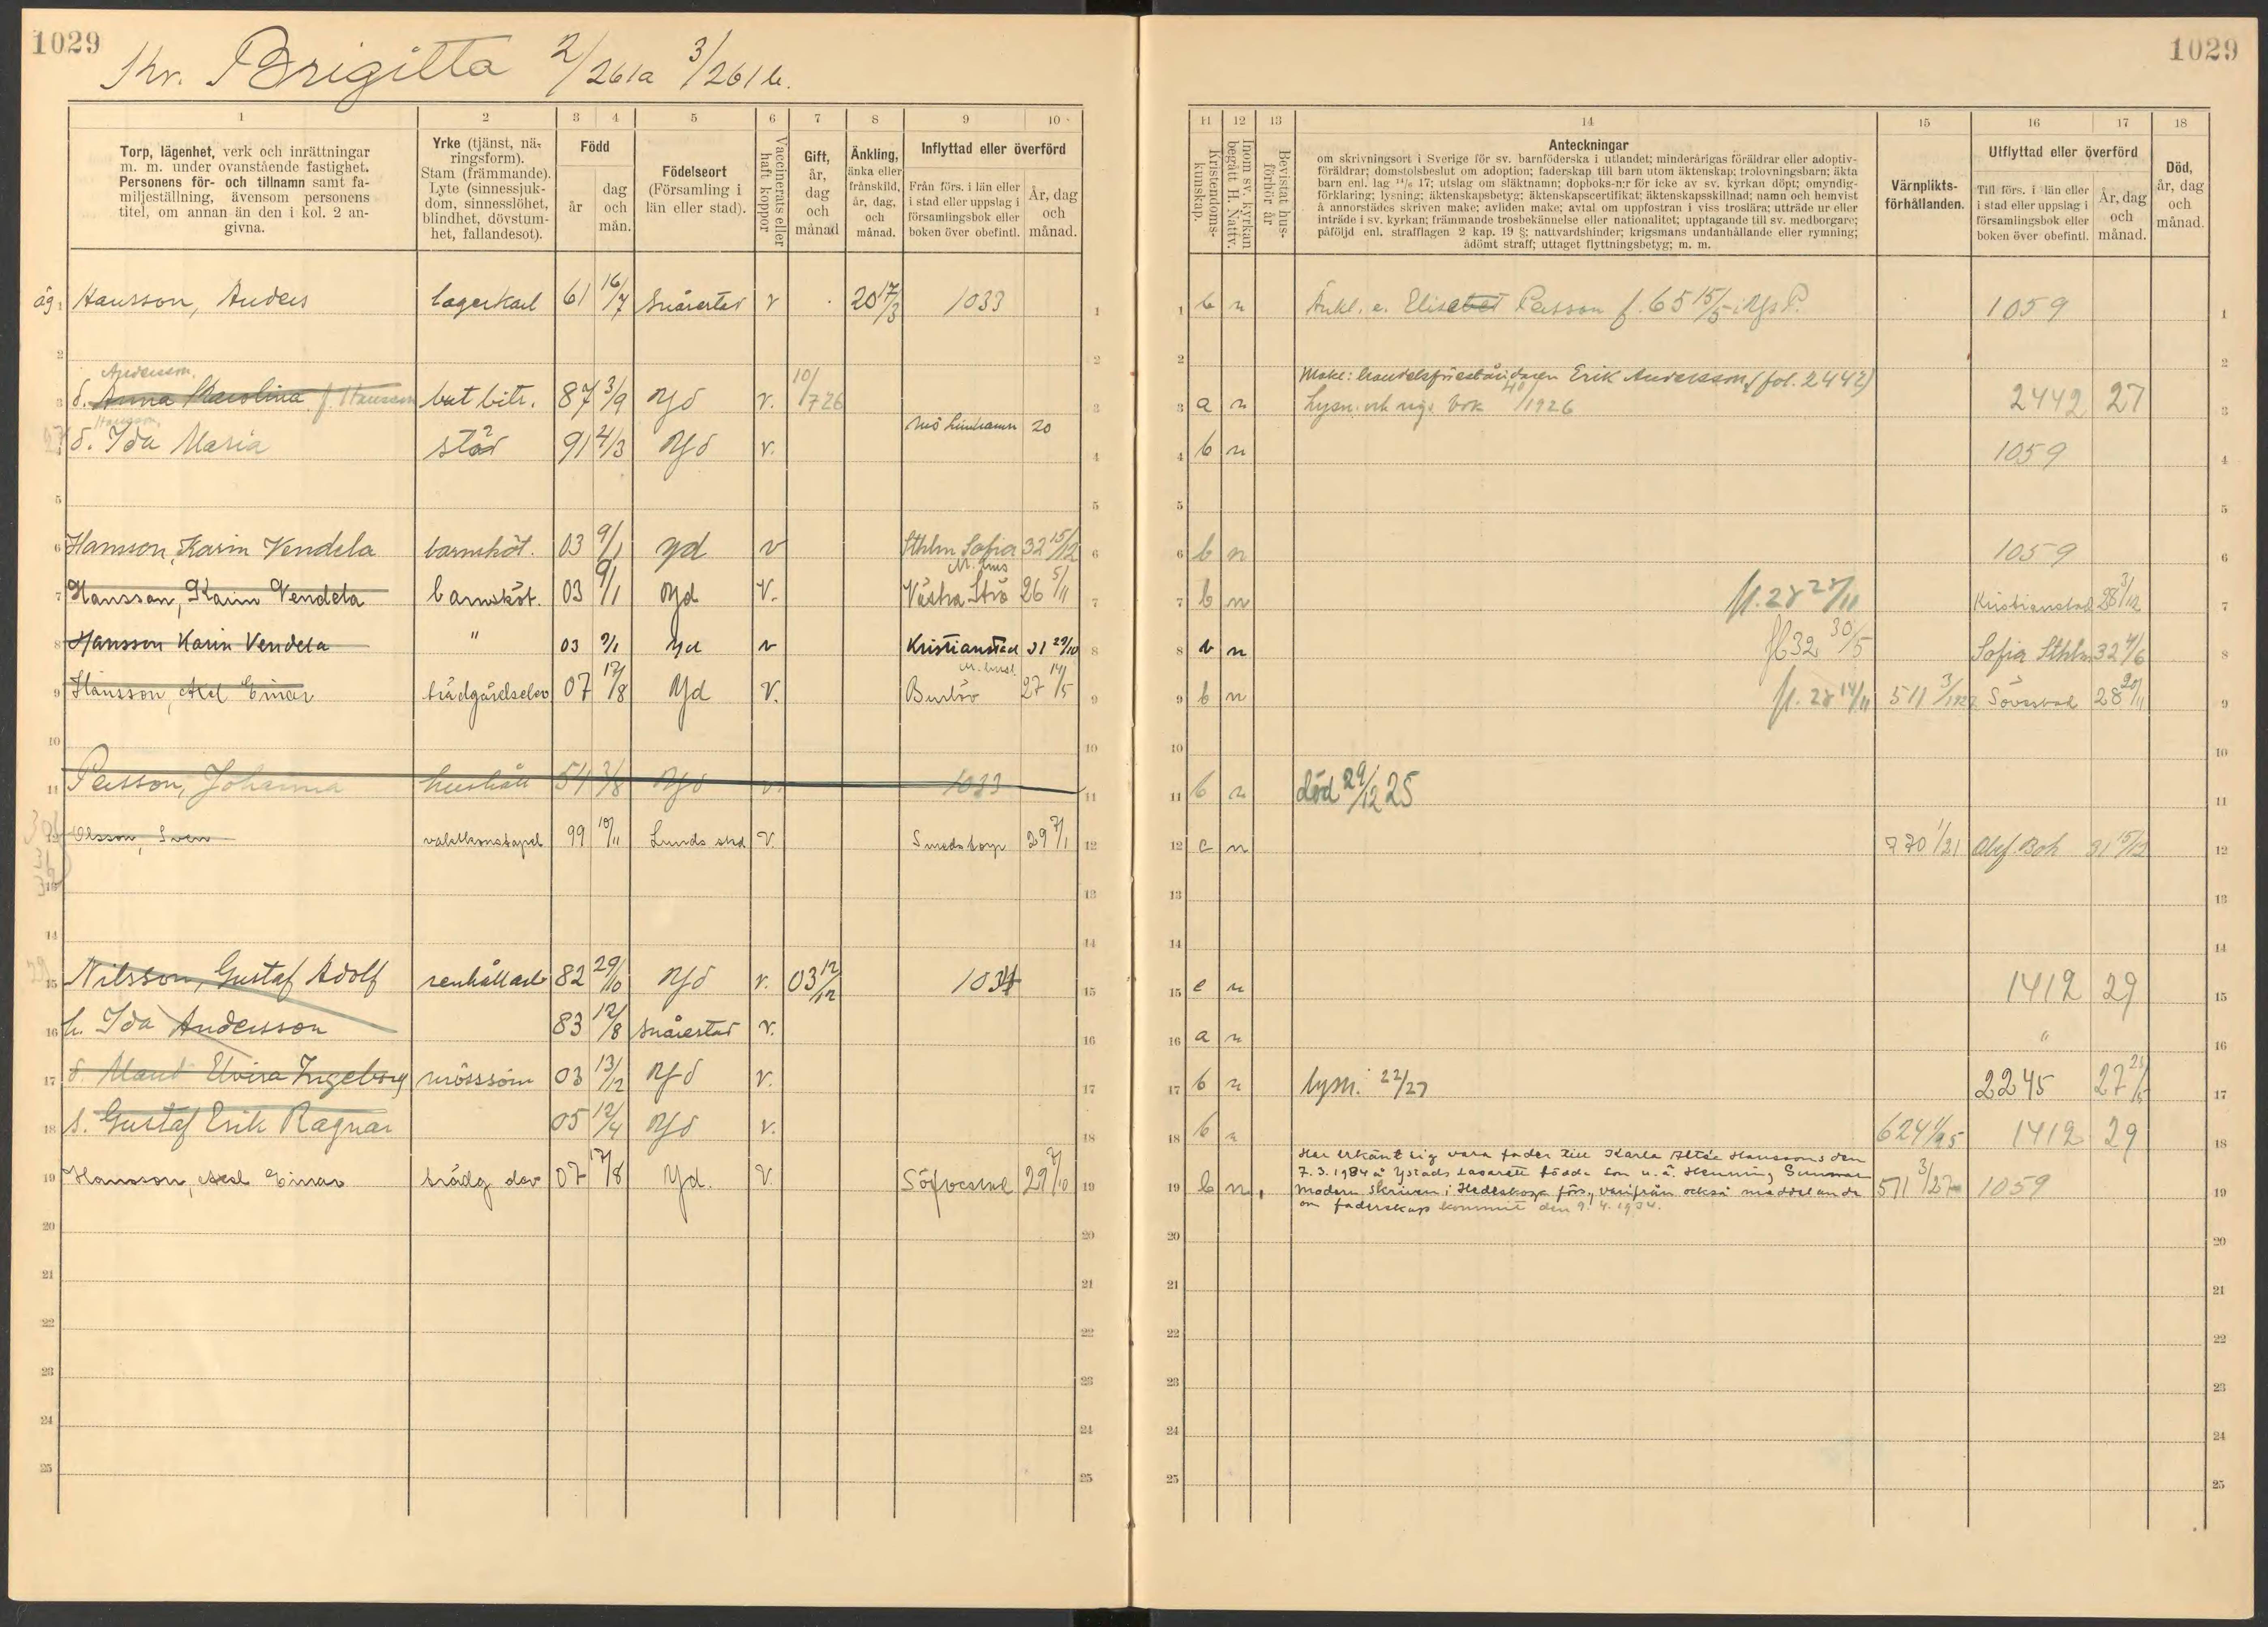 1029
Kv. Brigitta 2/261a 3/261b.
1 2 3 4 5 6 7 8 9 10
Torp, lägenhet, verk och inrättningar
m. m. under ovanstående fastighet.
Personens för- och tillnamn samt fa-
miljeställning, ävensom personens
titel, om annan än den i kol. 2 an-
givna.
Yrke (tjänst, nä-
ringsform).
Stam (främmande).
Lyte (sinnessjuk-
dom, sinnesslöhet,
blindhet, dövstum-
het, fallandesot).
Född
år
dag
och
mån.
Födelseort
(Församling i
län eller stad).
Vaccinerats eller
haft koppor
Gift,
år,
dag
och
månad
Änkling,
änka eller
frånskild,
år, dag,
och
månad.
Inflyttad eller överförd
Från förs. i län eller
i stad eller uppslag i
församlingsbok eller
boken över obefintl.
År, dag
och
månad.
äg. 1 Hansson, Anders lagerkarl 61 16/7 Snårestad v 20 17/3 1033 1
2 2
Andersson
3 d. Anna Karolina f. Hansson but bitr. 87 3/9 Yd v. 10/7 26 3
Hansson,
d. Ida Maria städ 91 2/3 Yd v. Limhamn 20 4
5 5
6 Hansson, Karin Vendela barnsköt. 03 9/1 Yd v Sthlm Sofia 32 15/12 6
7 Hansson, Karin Vendela barnsköt. 03 9/1 Yd v. Västra Strö 26 5/11 7
8 Hansson Karin Vendela " 03 9/1 Yd v Kristianstad 31 29/10 8
9 Hansson, Axel Einar trädgårdselev 07 17/8 Yd V. Burlöv 27 14/5 9
10 10
11 Persson, Johanna hushåll 51 3/8 Yd v. 1033 11
12 Olsson, Sven 99 10/11 Lunds stad V. Smedstorp 29 7/1 12
13 13
14 14
15 Nilsson, Gustaf Adolf renhåll arb 82 29/10 Yd v. 03 12/12 1034 15
16 h. Ida Andersson 83 12/8 Snårestad v. 16
17 d. Maud Elvira Ingeborg mösssöm 03 13/12 Yd v. 17
18 s. Gustaf Erik Ragnar 05 12/4 Yd v. 18
19 Hansson, Axel Einar trädg elev 07 17/8 Yd. V. Söfvestad 29 7/10 19
20 20
21 21
22 22
23 23
24 24
25 25
1029
11 12 13 14 15 16 17 18
Kristendoms-
kunskap.
Inom sv. kyrkan
begått H. Nattv.
Bevistat hus-
förhör år
Anteckningar
om skrivningsort i Sverige för sv. barnföderska i utlandet; minderårigas föräldrar eller adoptiv-
föräldrar; domstolsbeslut om adoption; faderskap till barn utom äktenskap; trolovningsbarn; äkta
barn enl. lag 14/6 17; utslag om släktnamn; dopboks-n:r för icke av sv. kyrkan döpt; omyndig-
förklaring; lysning; äktenskapsbetyg; äktenskapscertifikat; äktenskapsskillnad; namn och hemvist
å annorstädes skriven make; avliden make; avtal om uppfostran i viss troslära; utträde ur eller
inträde i sv. kyrkan; främmande trosbekännelse eller nationalitet; upptagande till sv. medborgare;
påföljd enl. strafflagen 2 kap. 19 §; nattvardshinder; krigsmans undanhållande eller rymning;
ådömt straff; uttaget flyttningsbetyg; m. m.
Värnplikts-
förhållanden.
Utflyttad eller överförd
Till förs. i län eller
i stad eller uppslag i
församlingsbok eller
boken över obefintl.
År, dag
och
månad.
Död,
år, dag
och
månad.
1 b n Änkl. e. Elisabet Persson f. 65 15/5 1059 1
2 2
Make: handelsföreståndaren Erik Andersson (fol. 2442)
3 a n Lysn. och vigs. bok 40/1926 2442 27 3
4 b n 1059 4
5 5
6 b n 1059 6
7 b n fl. 28 28/11 Kristianstad 28 3/12 7
8 b n fl 32 30/5 Sofia Sthlm 32 4/6 8
9 b n fl. 28 14/11 511 3/1927 Sövestad 28 20/11 9
10 10
11 b n död 29/12 25 11
12 c n 770 1/21 Obef Bok 31 15/12 12
13 13
14 14
15 c n 1412 29 15
16 a n " 16
17 b n lysn. 22/27 2245 27 17
18 b n 624 1412 29 18
Har erkänt sig vara fader till Karla Hanssons den
7.3.1934 å Ystads lasarett födde son u. ä. Henning Gunnar
19 b n Modern skriven i Hedeskoga förs., varifrån också meddelande 511 3/27 1059 19
om faderskap kommit den 9.4.1934.
20 20
21 21
22 22
23 23
24 24
25 25